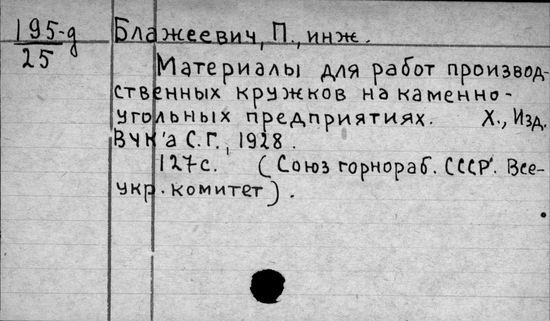 195-д Блажеевич, П., инж.
25
Материалы для работ производ-
ственных кружков на каменно-
угольных предприятиях. Х., Изд.
ВЧК'а С.Г., 1928.
127с. (Союз горнораб. СССР. Все-
укр. комитет).